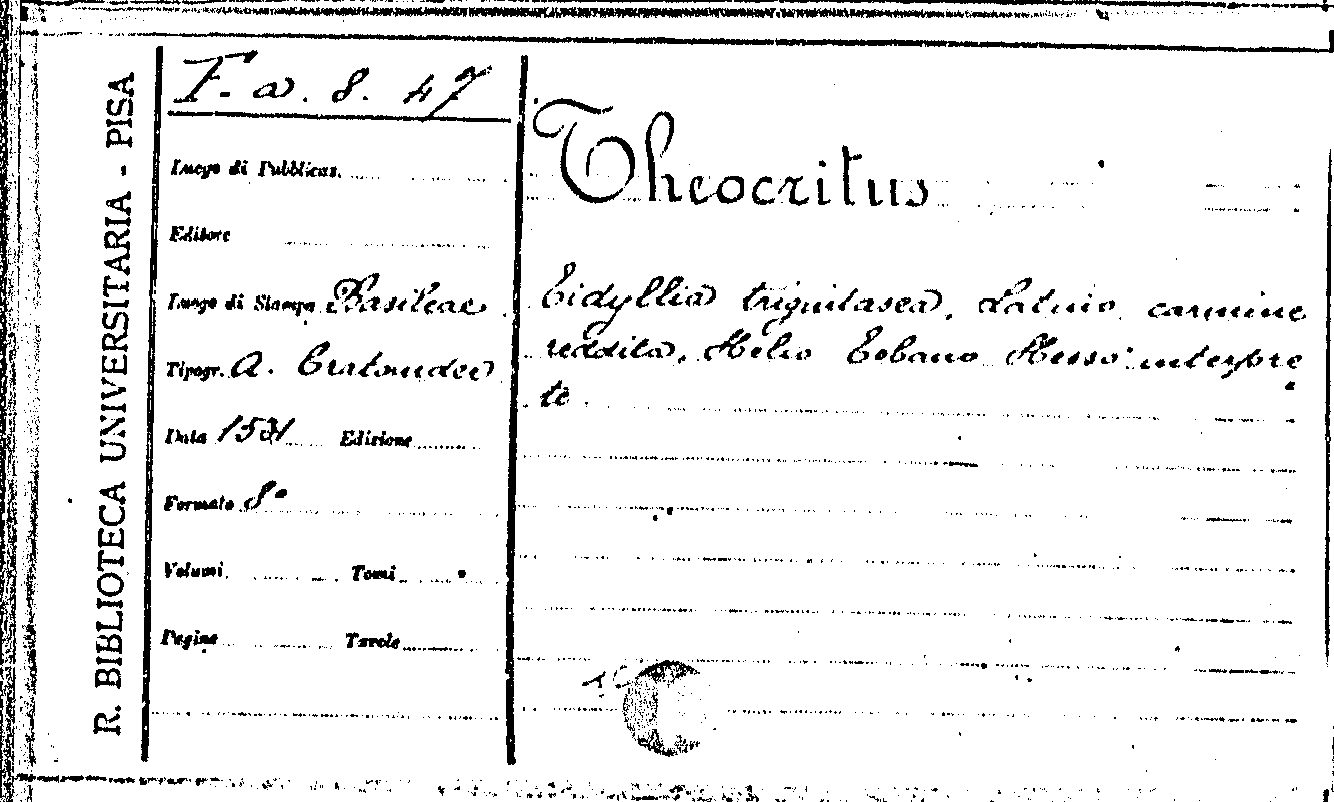 R. BIBLIOTECA UNIVERSITARIA - PISA
F. a. 8. 47
Luogo di Pubblicaz.
Editore
Luogo di Stampa Basileae
Tipogr. A. Cratander
Data 1531 Edizione
Formato 8°
Volumi Tomi
Pagine Tavole
Theocritus
Eidyllia trigintasea, Latino carmine
reddita, Helio Eobano Hesso interpre
te.